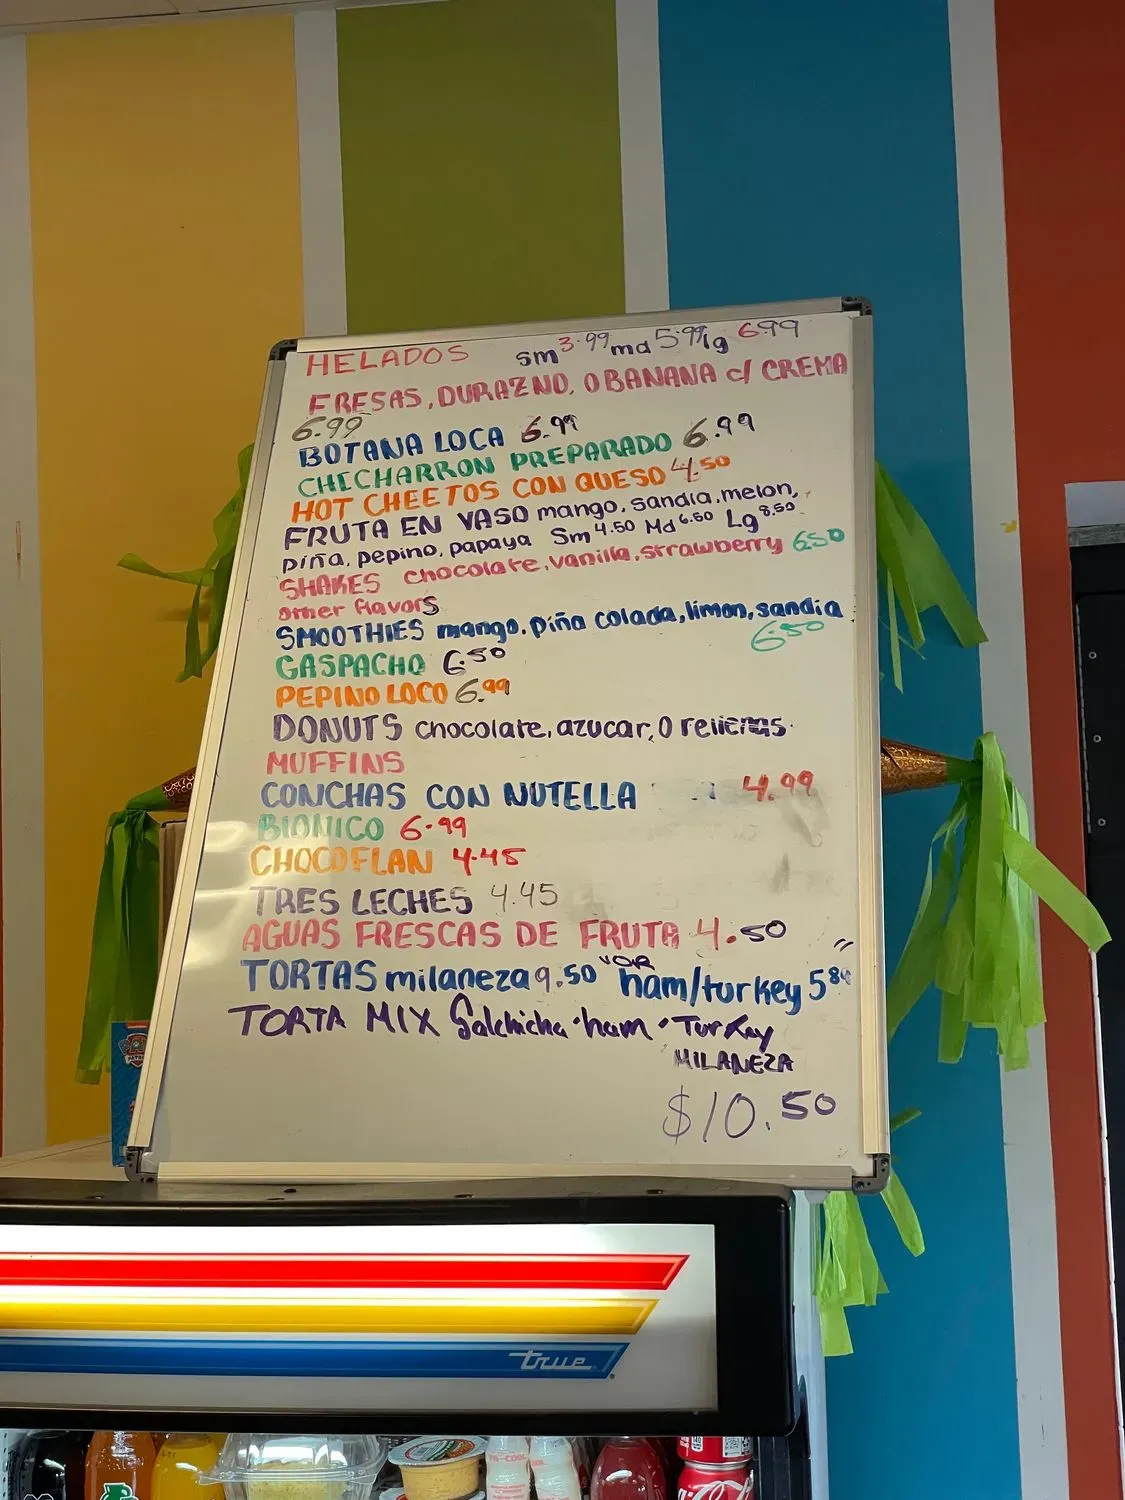 HELADOS sm 3.99 md 5.99 lg 6.99
FRESAS, DURAZNO, O BANANA c/ CREMA
6.99
BOTANA LOCA 6.99
CHICHARRON PREPARADO 6.99
HOT CHEETOS CON QUESO 4.50
FRUTA EN VASO mango, sandia, melon,
piña, pepino, papaya Sm 4.50 Md 6.50 Lg 8.50
SHAKES chocolate, vanilla, strawberry 6.50
other flavors
SMOOTHIES mango, piña colada, limon, sandia
6.50
GASPACHO 6.50
PEPINO LOCO 6.99
DONUTS chocolate, azucar, O rellenas.
MUFFINS
CONCHAS CON NUTELLA 4.99
BIONICO 6.99
CHOCOFLAN 4.45
TRES LECHES 4.45
AGUAS FRESCAS DE FRUTA 4.50
TORTAS milaneza 9.50 "OR" ham/turkey 5
TORTA MIX Salchicha · ham · Turkey
MILANEZA
$10.50
true